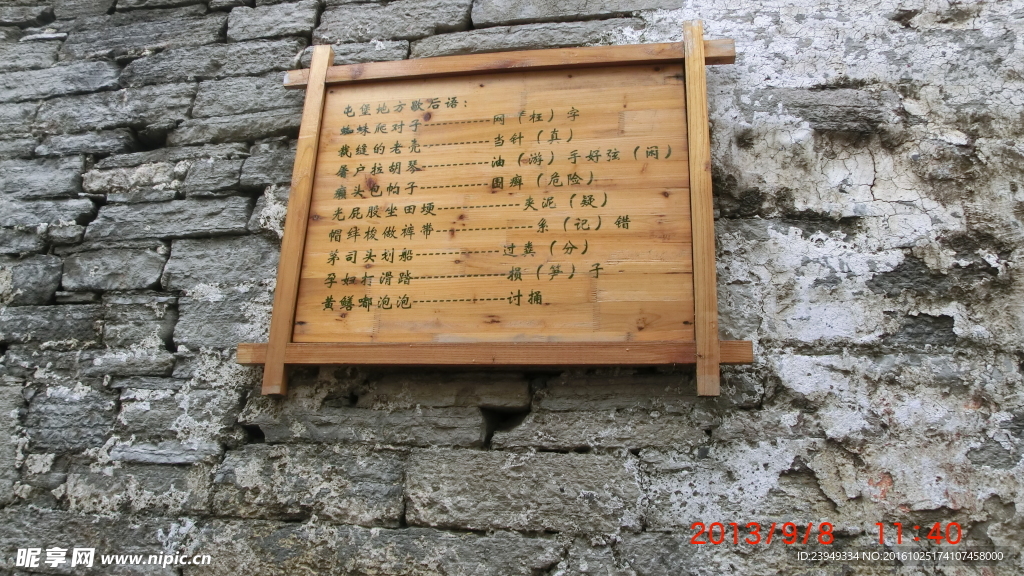 屯堡地方歇后语：
蜘蛛爬对子----------网（枉）字
裁缝的老壳----------当针（真）
屠户拉胡琴----------油（游）手好弦（闲）
癞头包帕子----------围癣（危险）
光屁股坐田埂------------夹泥（疑）
帽绊梭做裤带--------------系（记）错
茅司头划船------------过粪（分）
孕妇打滑踏--------------损（笋）子
黄鳝嘟泡泡--------------讨捅
2013/9/8 11:40
昵享网 www.nipic.cn
ID:23949334 NO:20161025174107458000